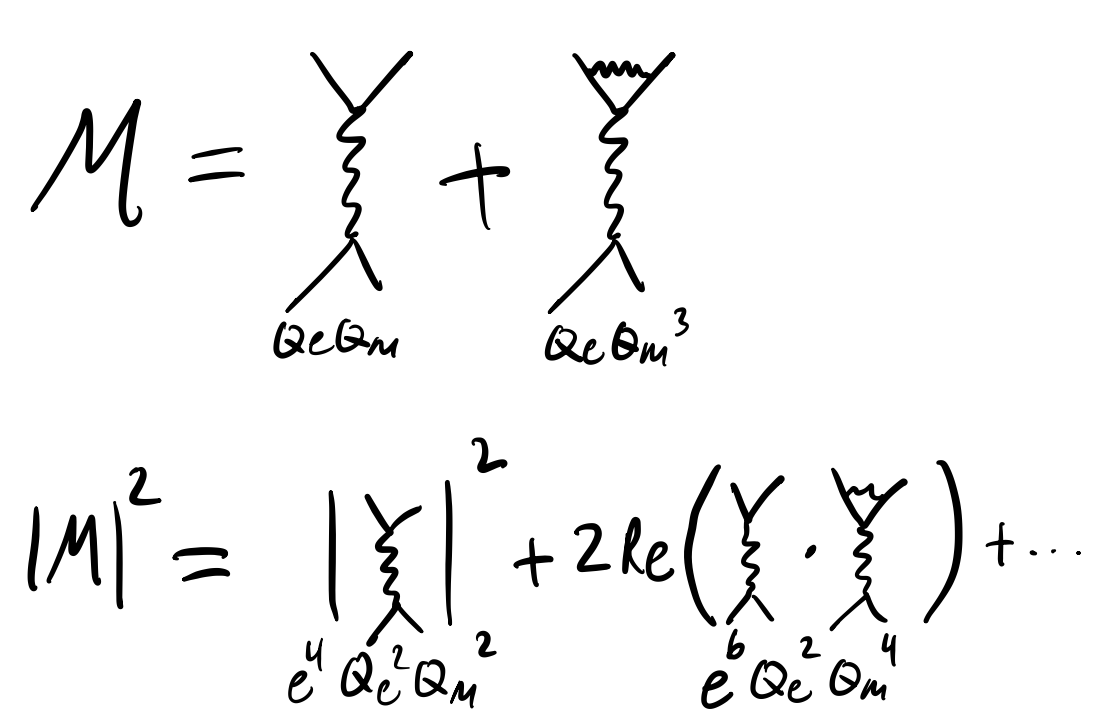 M = +
QeQm QeQm³
|M|² = | |² + 2Re( · ) + ...
e⁴Qe²Qm² e⁶Qe²Qm⁴